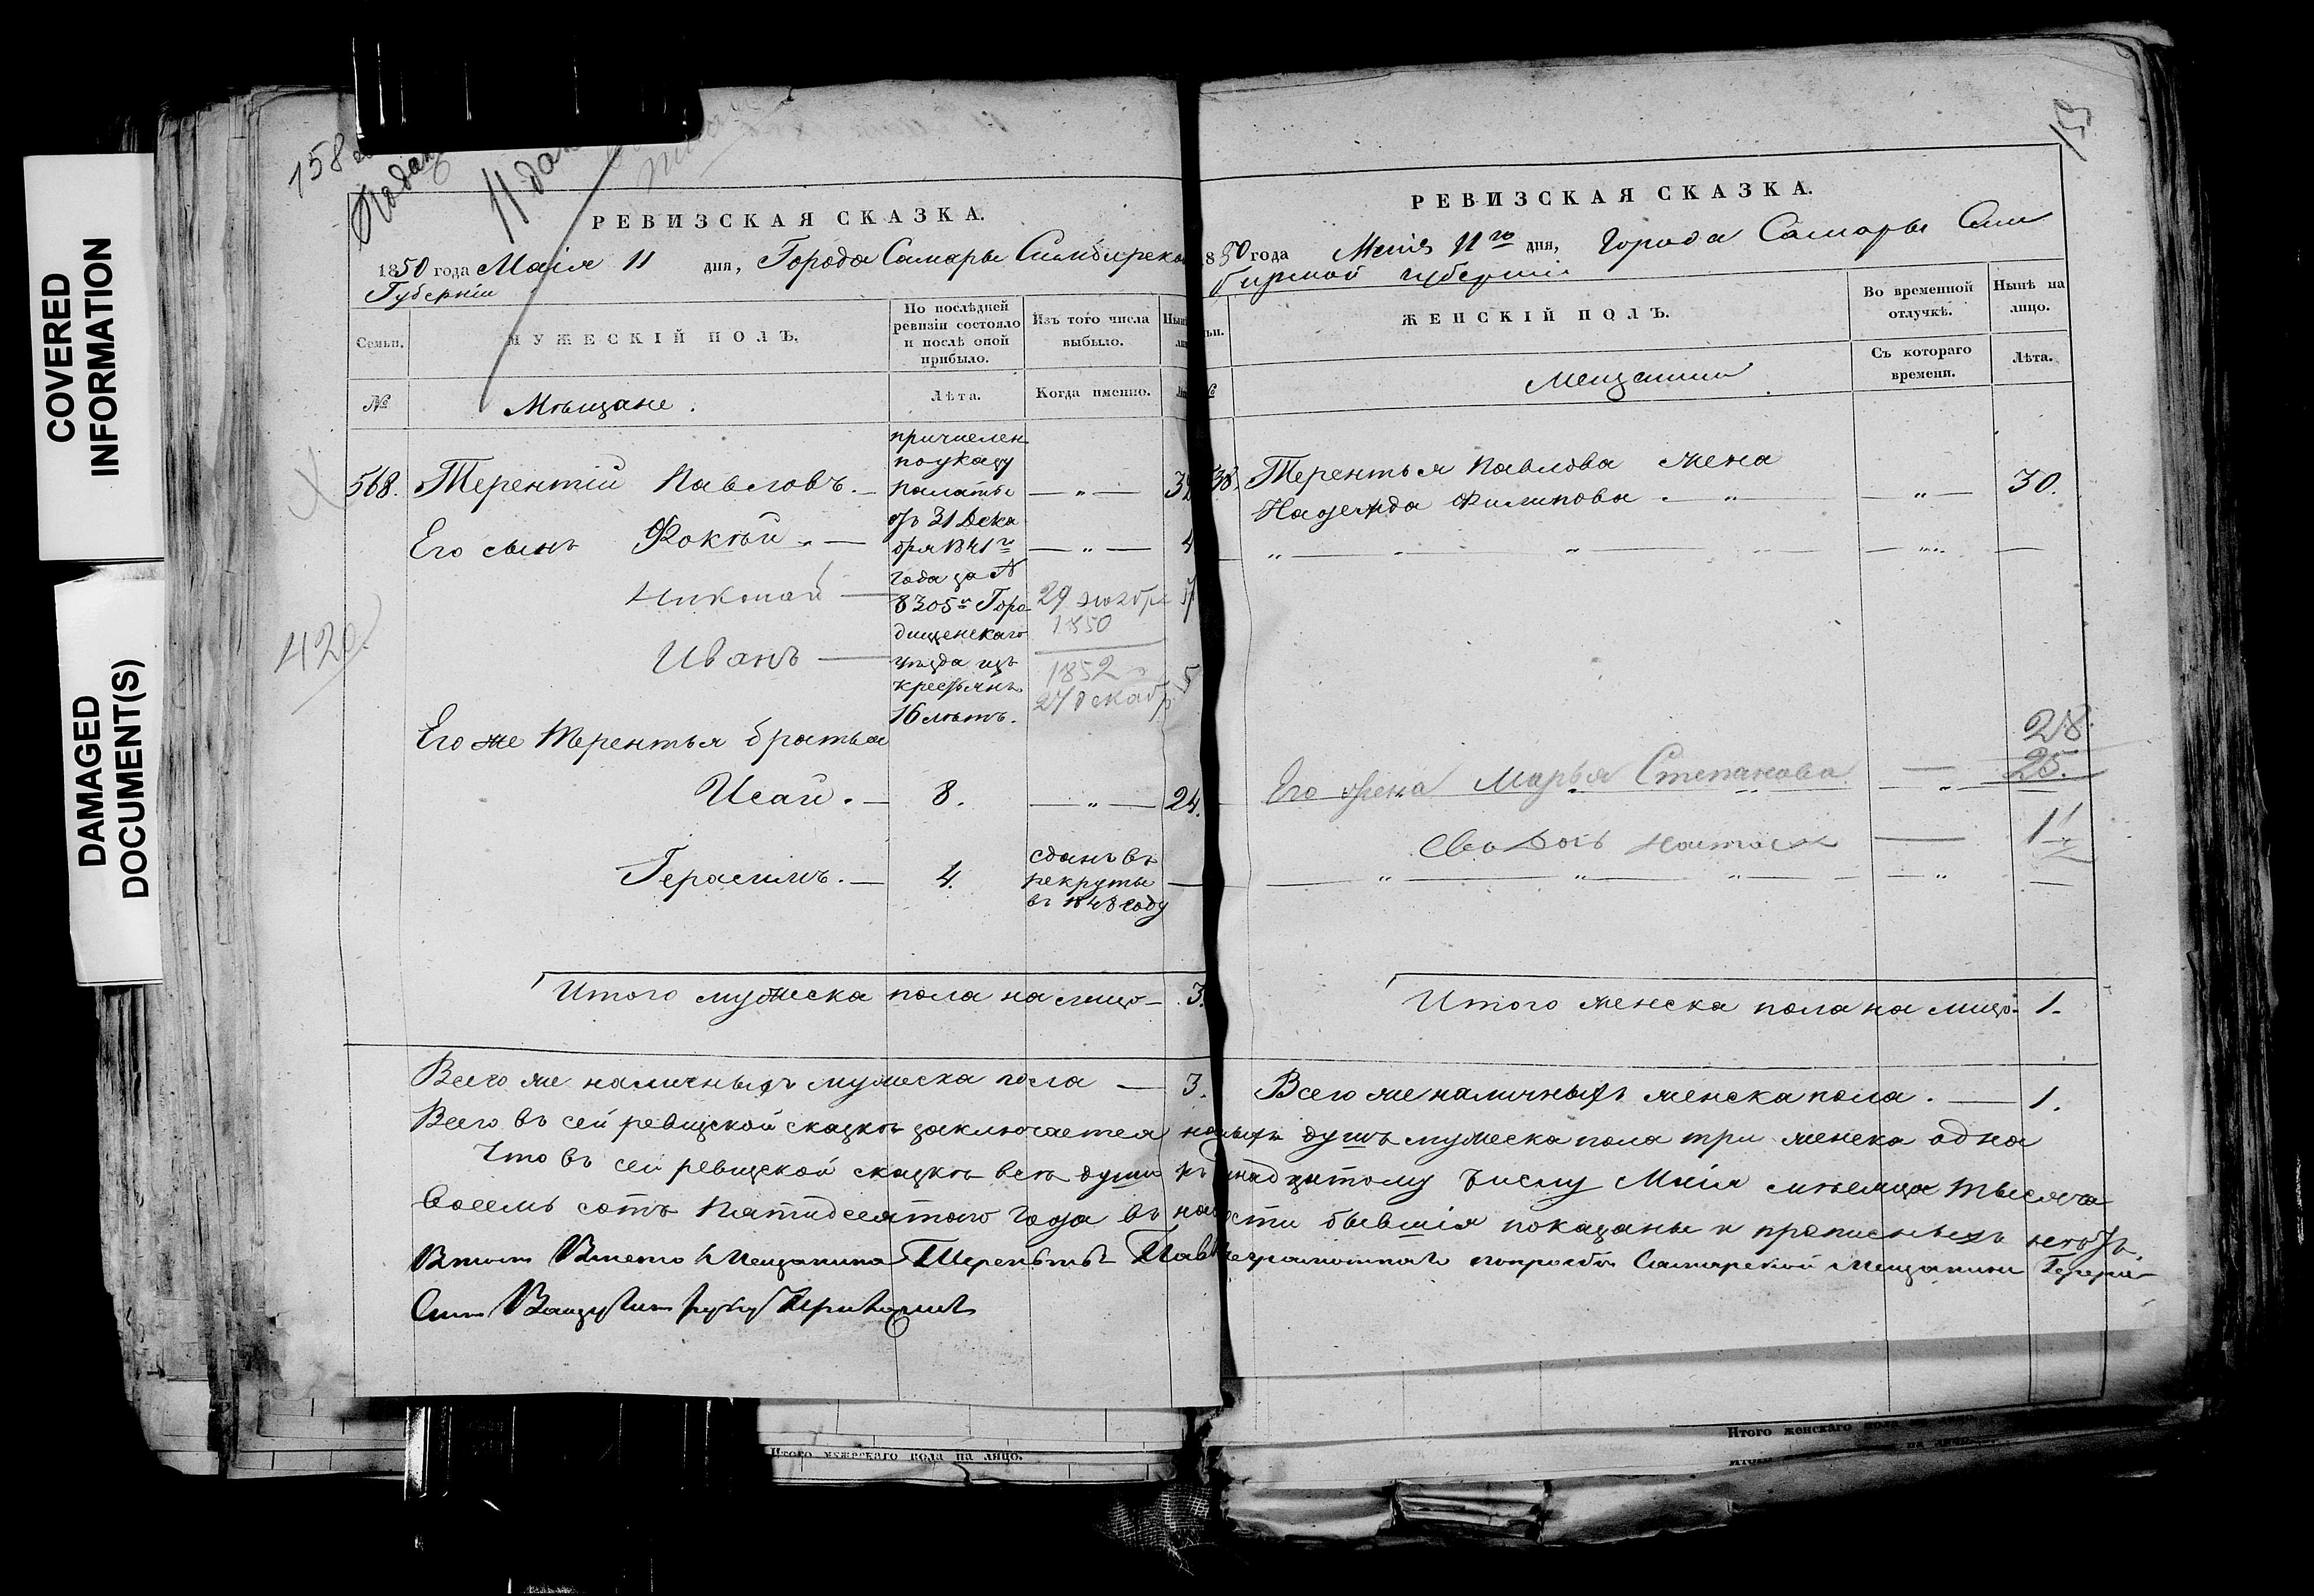 COVERED
INFORMATION
DAMAGED
DOCUMENT(S)
158
11
РЕВИЗСКАЯ СКАЗКА.
1850 года Маiя 11 дня, Города Самары Симбирско
Губернiи
Семьи.
МУЖЕСКIЙ ПОЛЪ.
По послѣдней
ревизiи состояло
и послѣ оной
прибыло.
Изъ того числа
выбыло.
№
Мѣщане.
Лѣта.
Когда именно.
568. Терентiй Павловъ. —
причислен
по указу
палаты
отъ 31 Дека
бря 1841го
года за №
8305м Горо-
дищенскаго
уѣзда изъ
крестьянъ
16 лѣтъ.
— „ —
Его сынъ Фокѣй. — — „ — 4
Николай — 29 ноября
1850
Иванъ — 1852
27 декаб 5
Его же Терентья братья
Исай. — 8. — „ — 24.
Герасимъ. — 4. сданъ въ
рекруты
въ 1848 году —
Итого мужеска пола на лицо — 3.
Всего же наличныхъ мужеска пола — 3.
РЕВИЗСКАЯ СКАЗКА.
850 года Маiя 11го дня, Города Самары Сим
бирской губернiи
ЖЕНСКIЙ ПОЛЪ.
Во временной
отлучкѣ.
Нынѣ на
лицо.
Съ котораго
времени.
Лѣта.
№
Мещанки
Терентья Павлова жена
Надежда Филипова. „ — „ — 30.
28
Его жена Марья Степанова — 25.
Ево дочь Настася — 1 1/2
Итого женска пола на лицо. 1.
Всего же наличныхъ женска пола. — 1.
Всего въ сей ревизской сказкѣ заключается душъ мужеска пола три женска одна
Что въ сей ревизской сказкѣ всѣ души къ надцатому числу Маiя мѣсяца тысяча
восемь сотъ пятидесятого года въ на сти бывшiя показаны и прописныхъ нетъ
Вместо мещанина Терентья Пав неграмотнаго по прозбѣ Самарской мещанин
руку приложилъ
Итого мужескаго пола на лицо.
Итого женскаго пола на лицо.